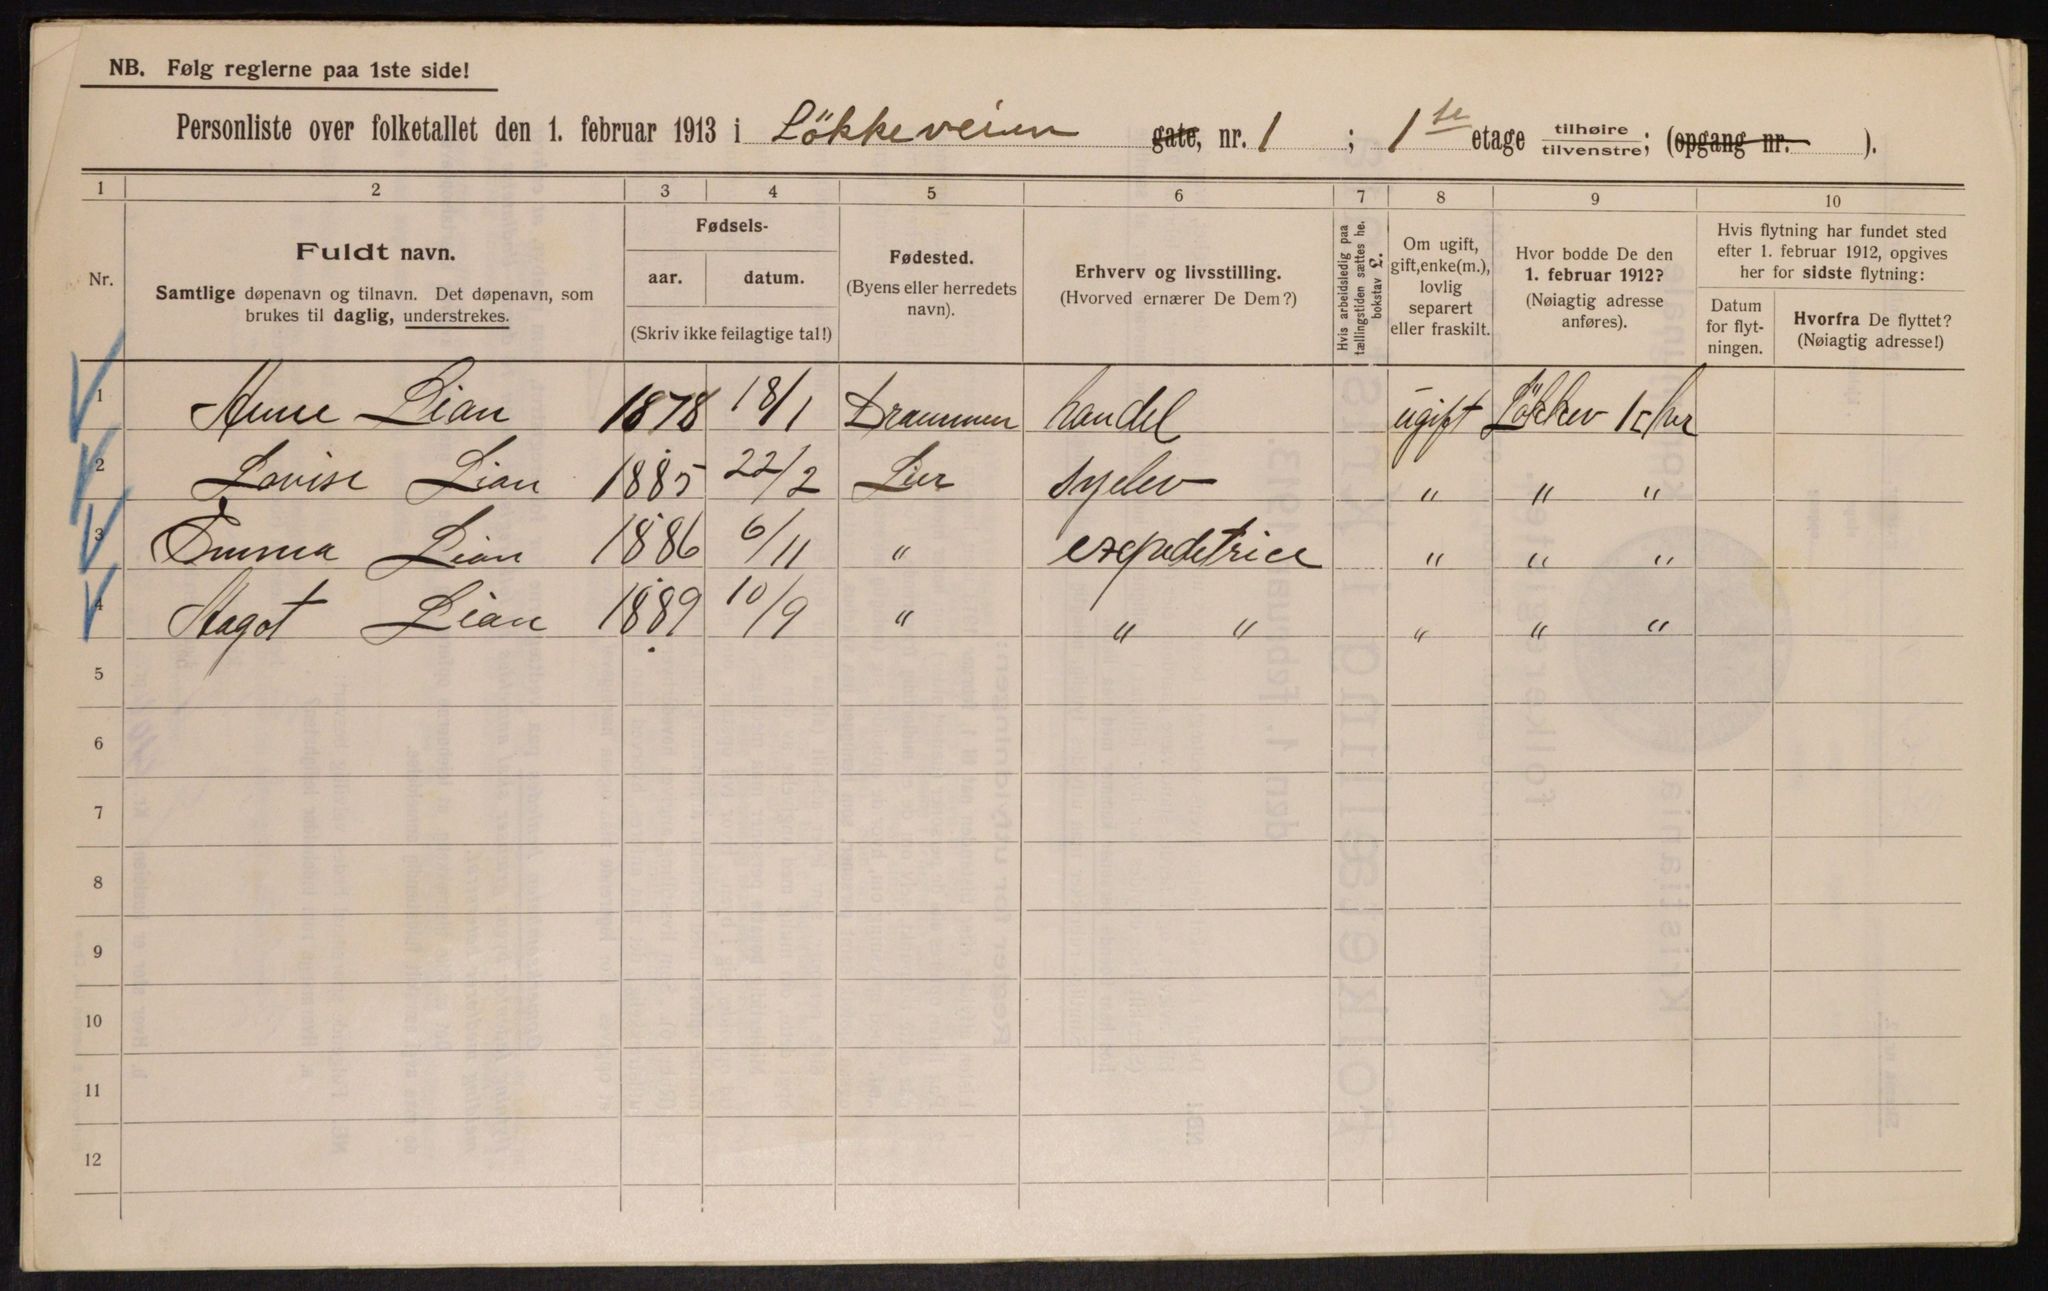 NB. Følg reglerne paa 1ste side!
Personliste over folketallet den 1. februar 1913 i Løkkeveien gate, nr. 1 ; 1ste etage tilhøire tilvenstre; (opgang nr. ).
1 2 3 4 5 6 7 8 9 10
Nr.
Fuldt navn.
Samtlige døpenavn og tilnavn. Det døpenavn, som
brukes til daglig, understrekes.
Fødsels-
aar. datum.
(Skriv ikke feilagtige tal!)
Fødested.
(Byens eller herredets
navn).
Erhverv og livsstilling.
(Hvorved ernærer De Dem?)
Hvis arbeidsledig paa
tællingstiden sættes he.
bokstav L.
Om ugift,
gift, enke(m.),
lovlig
separert
eller fraskilt.
Hvor bodde De den
1. februar 1912?
(Nøiagtig adresse
anføres).
Hvis flytning har fundet sted
efter 1. februar 1912, opgives
her for sidste flytning:
Datum
for flyt-
ningen.
Hvorfra De flyttet?
(Nøiagtig adresse!)
1 Anne Lian 1878 18/1 Drammen handel ugift Løkkev 1
2 Lovise Lian 1885 22/2 Lier syelev " " "
3 Emma Lian 1886 6/11 " expedetrice " " "
4 Magot Lian 1889 10/9 " " " " " "
5
6
7
8
9
10
11
12